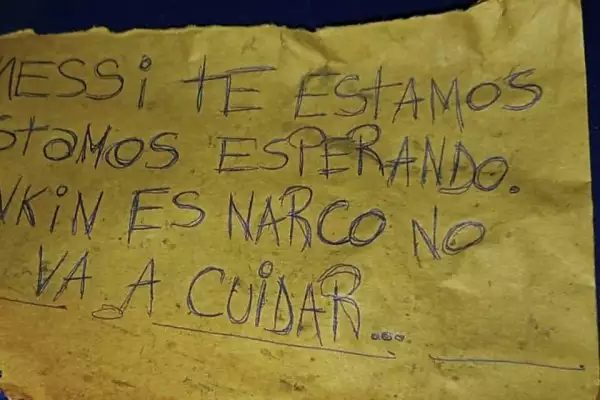 MESSi TE ESTAMOS
EStaMOS ESPERANDO.
VKiN ES NARCO NO
VA A CUiDAR...